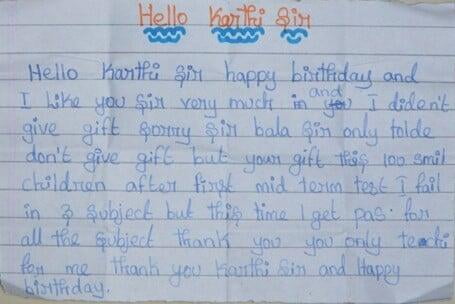 Hello Karthi Sir
Hello Karthi Sir happy birthday and
I like you Sir very much in and I diden't
give gift Sorry Sir bala Sir only tolde
don't give gift but your gift this 100 smil
children after first mid term test I fail
in 3 Subject but this time I get pas. for
all the Subject thank you you only teachi
for me thank you Karthi Sir and Happy
birthday.